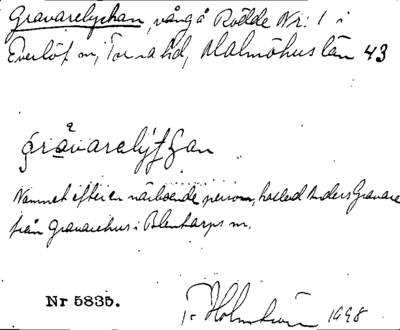 Gravarelyckan, vång å Rödde Nr: 1 i
Everlöf sn, Torna hd, Malmöhus län 43
Namnet efter en närboende person, kallad Anders Gravare
från Gravarehus i Blentarps sn.
Nr 5835.